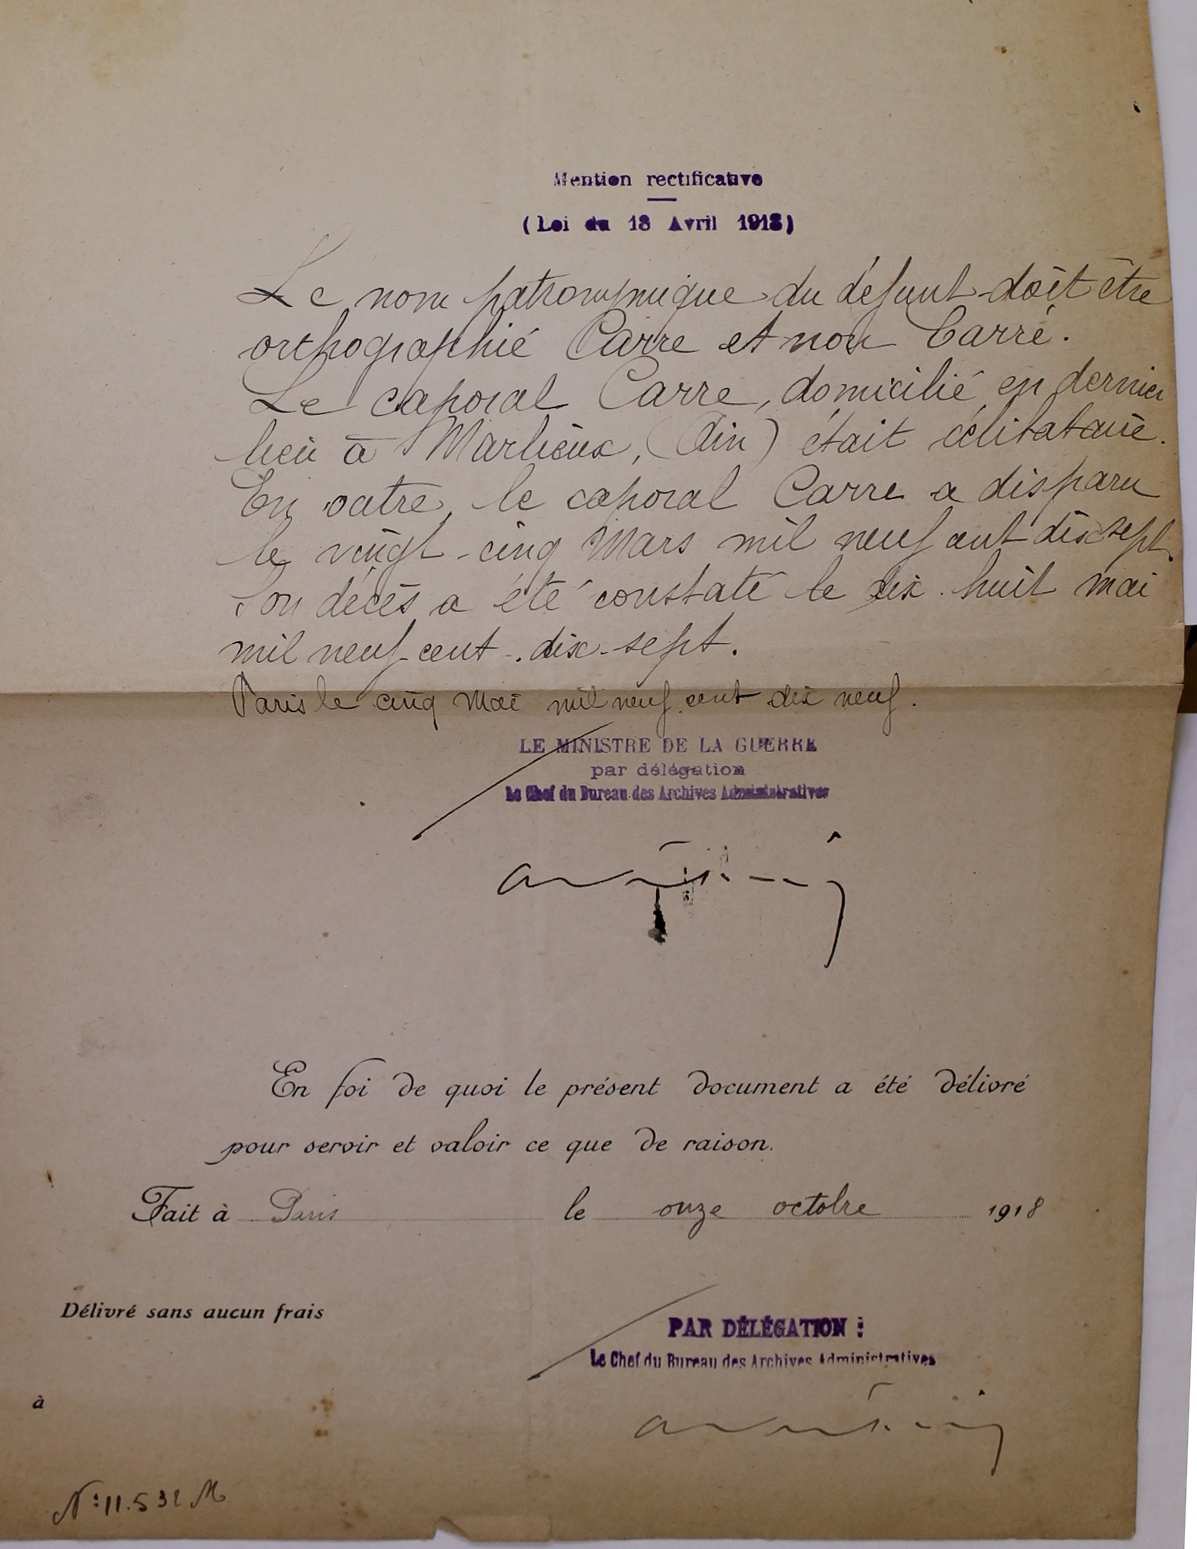 Mention rectificative
(Loi du 18 Avril 1918)
Le nom patronymique du défunt doit être
orthographié Carre et non Carré.
Le caporal Carre, domicilié en dernier
lieu à Marlieux, (Ain) était célibataire.
En outre, le caporal Carre a disparu
le vingt-cinq Mars mil neuf cent dix sept.
Son décès a été constaté le dix-huit mai
mil neuf cent-dix-sept.
Paris le cinq Mai mil neuf cent dix neuf.
LE MINISTRE DE LA GUERRE
par délégation
Le Chef du Bureau des Archives Administratives
En foi de quoi le présent document a été délivré
pour servir et valoir ce que de raison.
Fait à Paris le onze octobre 1918
Délivré sans aucun frais
PAR DÉLÉGATION :
Le Chef du Bureau des Archives Administratives
à
N° 11.532 M